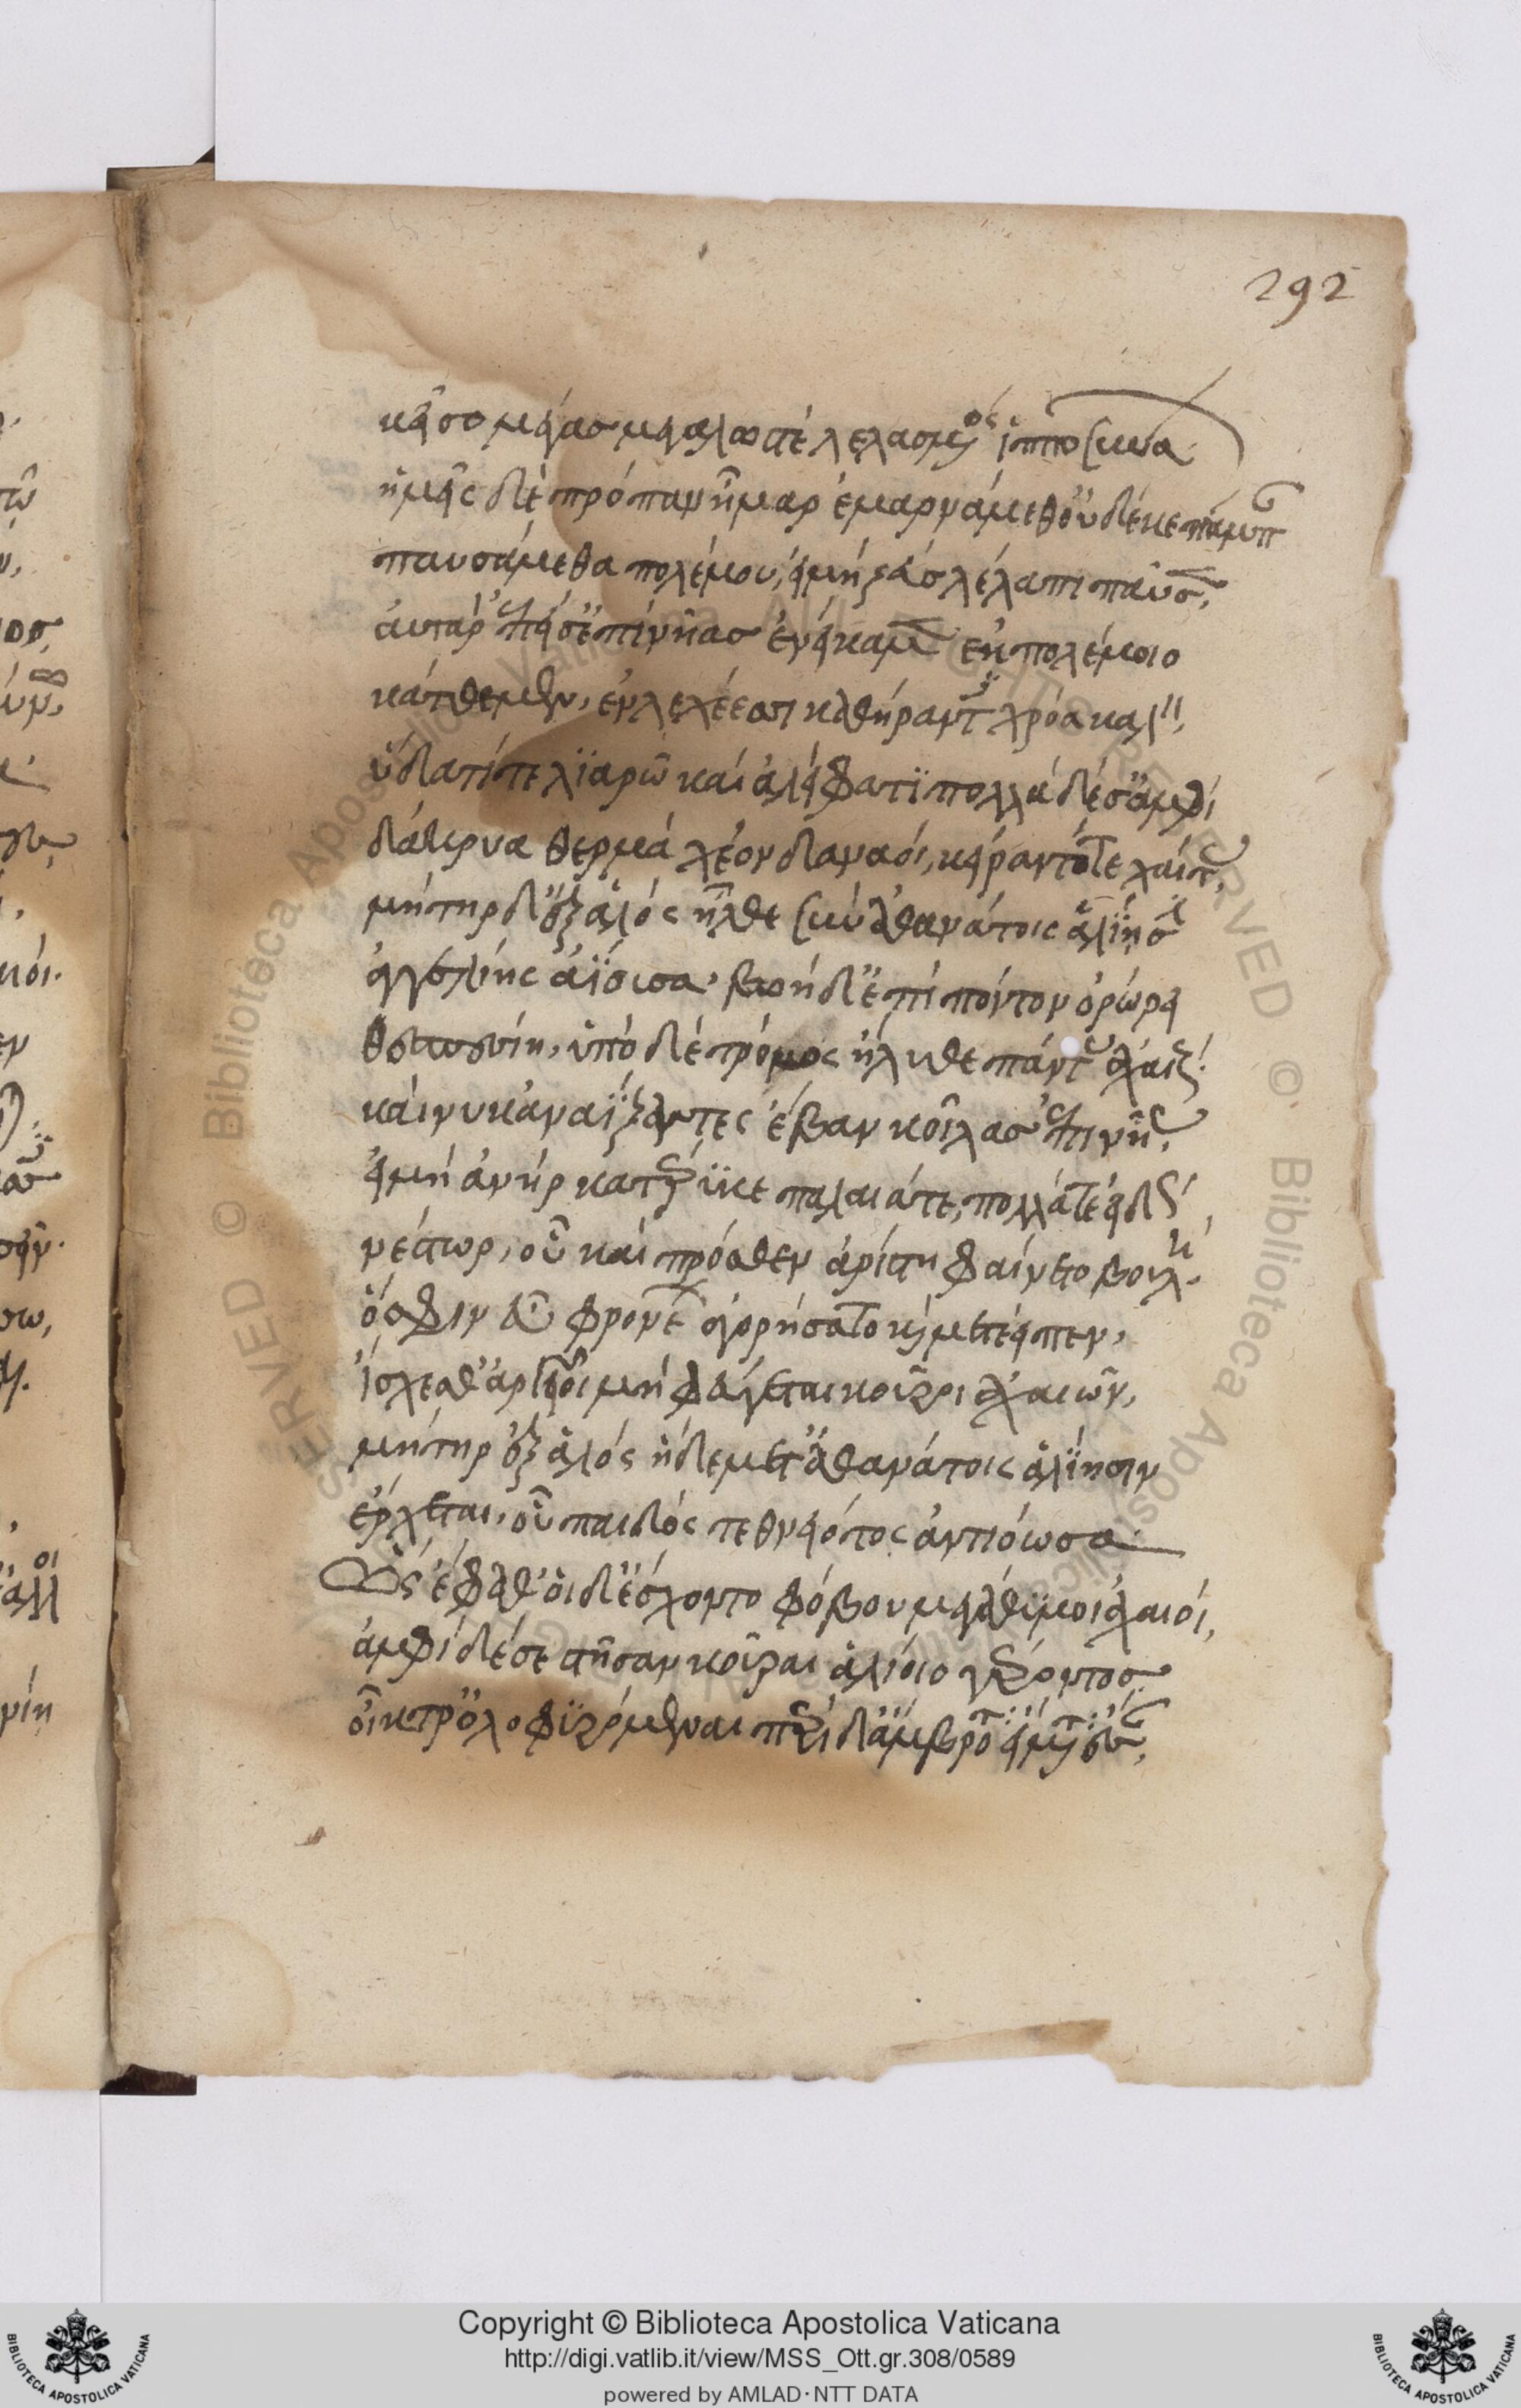 292
κεῖσο μέγας μεγαλωστὶ λελασμένος ἱπποσυνάων.
ἡμεῖς δὲ πρόπαν ἦμαρ ἐμαρνάμεθ' οὐδέ κε πάμπαν
παυσάμεθα πολέμου, εἰ μὴ ζεὺς λέλαπι παῦσεν,
αὐτὰρ ἐπεί σ' ἐπὶ νῆας ἐνείκαμεν ἐκ πολέμοιο
κάτθεμεν, ἐν λεχέεσσι καθήραντες χρόα καλὸν,
ὕδατί τε λιαρῷ καὶ ἀλείφατι πολλὰ δέ σ' ἀμφὶ
δάκρυα θερμὰ χέον δαναοὶ, κείραντό τε χαίτας,
μήτηρ δ' ἐξ ἁλὸς ἦλθε σὺν ἀθανάτοις ἁλίῃσιν
ἀγγελίης ἀΐουσα· βοὴ δ' ἐπὶ πόντον ὀρώρει
θεσπεσίη, ὑπὸ δὲ τρόμος ἤλυθε πάντας ἀχαιούς.
καί νυ κ' ἀναΐξαντες ἔβαν κοίλας ἐπὶ νῆας,
εἰ μὴ ἀνὴρ κατέρυκε παλαιά τε, πολλά τε εἰδὼς
νέστωρ, οὗ καὶ πρόσθεν ἀρίστη φαίνετο βουλή.
ὅ σφιν ἐῢ φρονέων ἀγορήσατο καὶ μετέειπεν,
ἴσχεσθ' ἀργεῖοι μὴ φεύγεται κοῦροι ἀχαιῶν,
μήτηρ ἐξ ἁλὸς ἥδε μετ' ἀθανάτοις ἁλίῃσιν
ἔρχεται, οὗ παιδὸς τεθνειότος ἀντιόωσα.
Ὣς ἔφαθ' οἱ δ' ἔσχοντο φόβου μεγάθυμοι ἀχαιοί,
ἀμφὶ δέ σε στῆσαν κοῦραι ἁλίοιο γέροντος
οἴκτρ' ὀλοφυρόμεναι περὶ δ' ἄμβροτα εἵματα ἕσσαν,
Copyright © Biblioteca Apostolica Vaticana
http://digi.vatlib.it/view/MSS_Ott.gr.308/0589
powered by AMLAD·NTT DATA